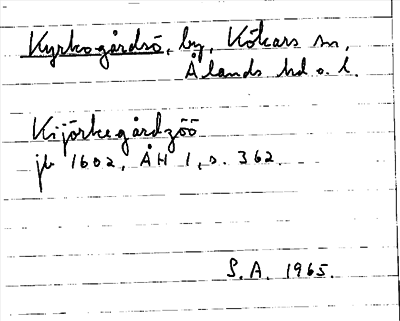 Kyrkogårdsö, by, Kökars sn,
Ålands hd o. l.
Kijörkegårdzöö
jb 1602, ÅH 1, s. 362.
S.A. 1965.